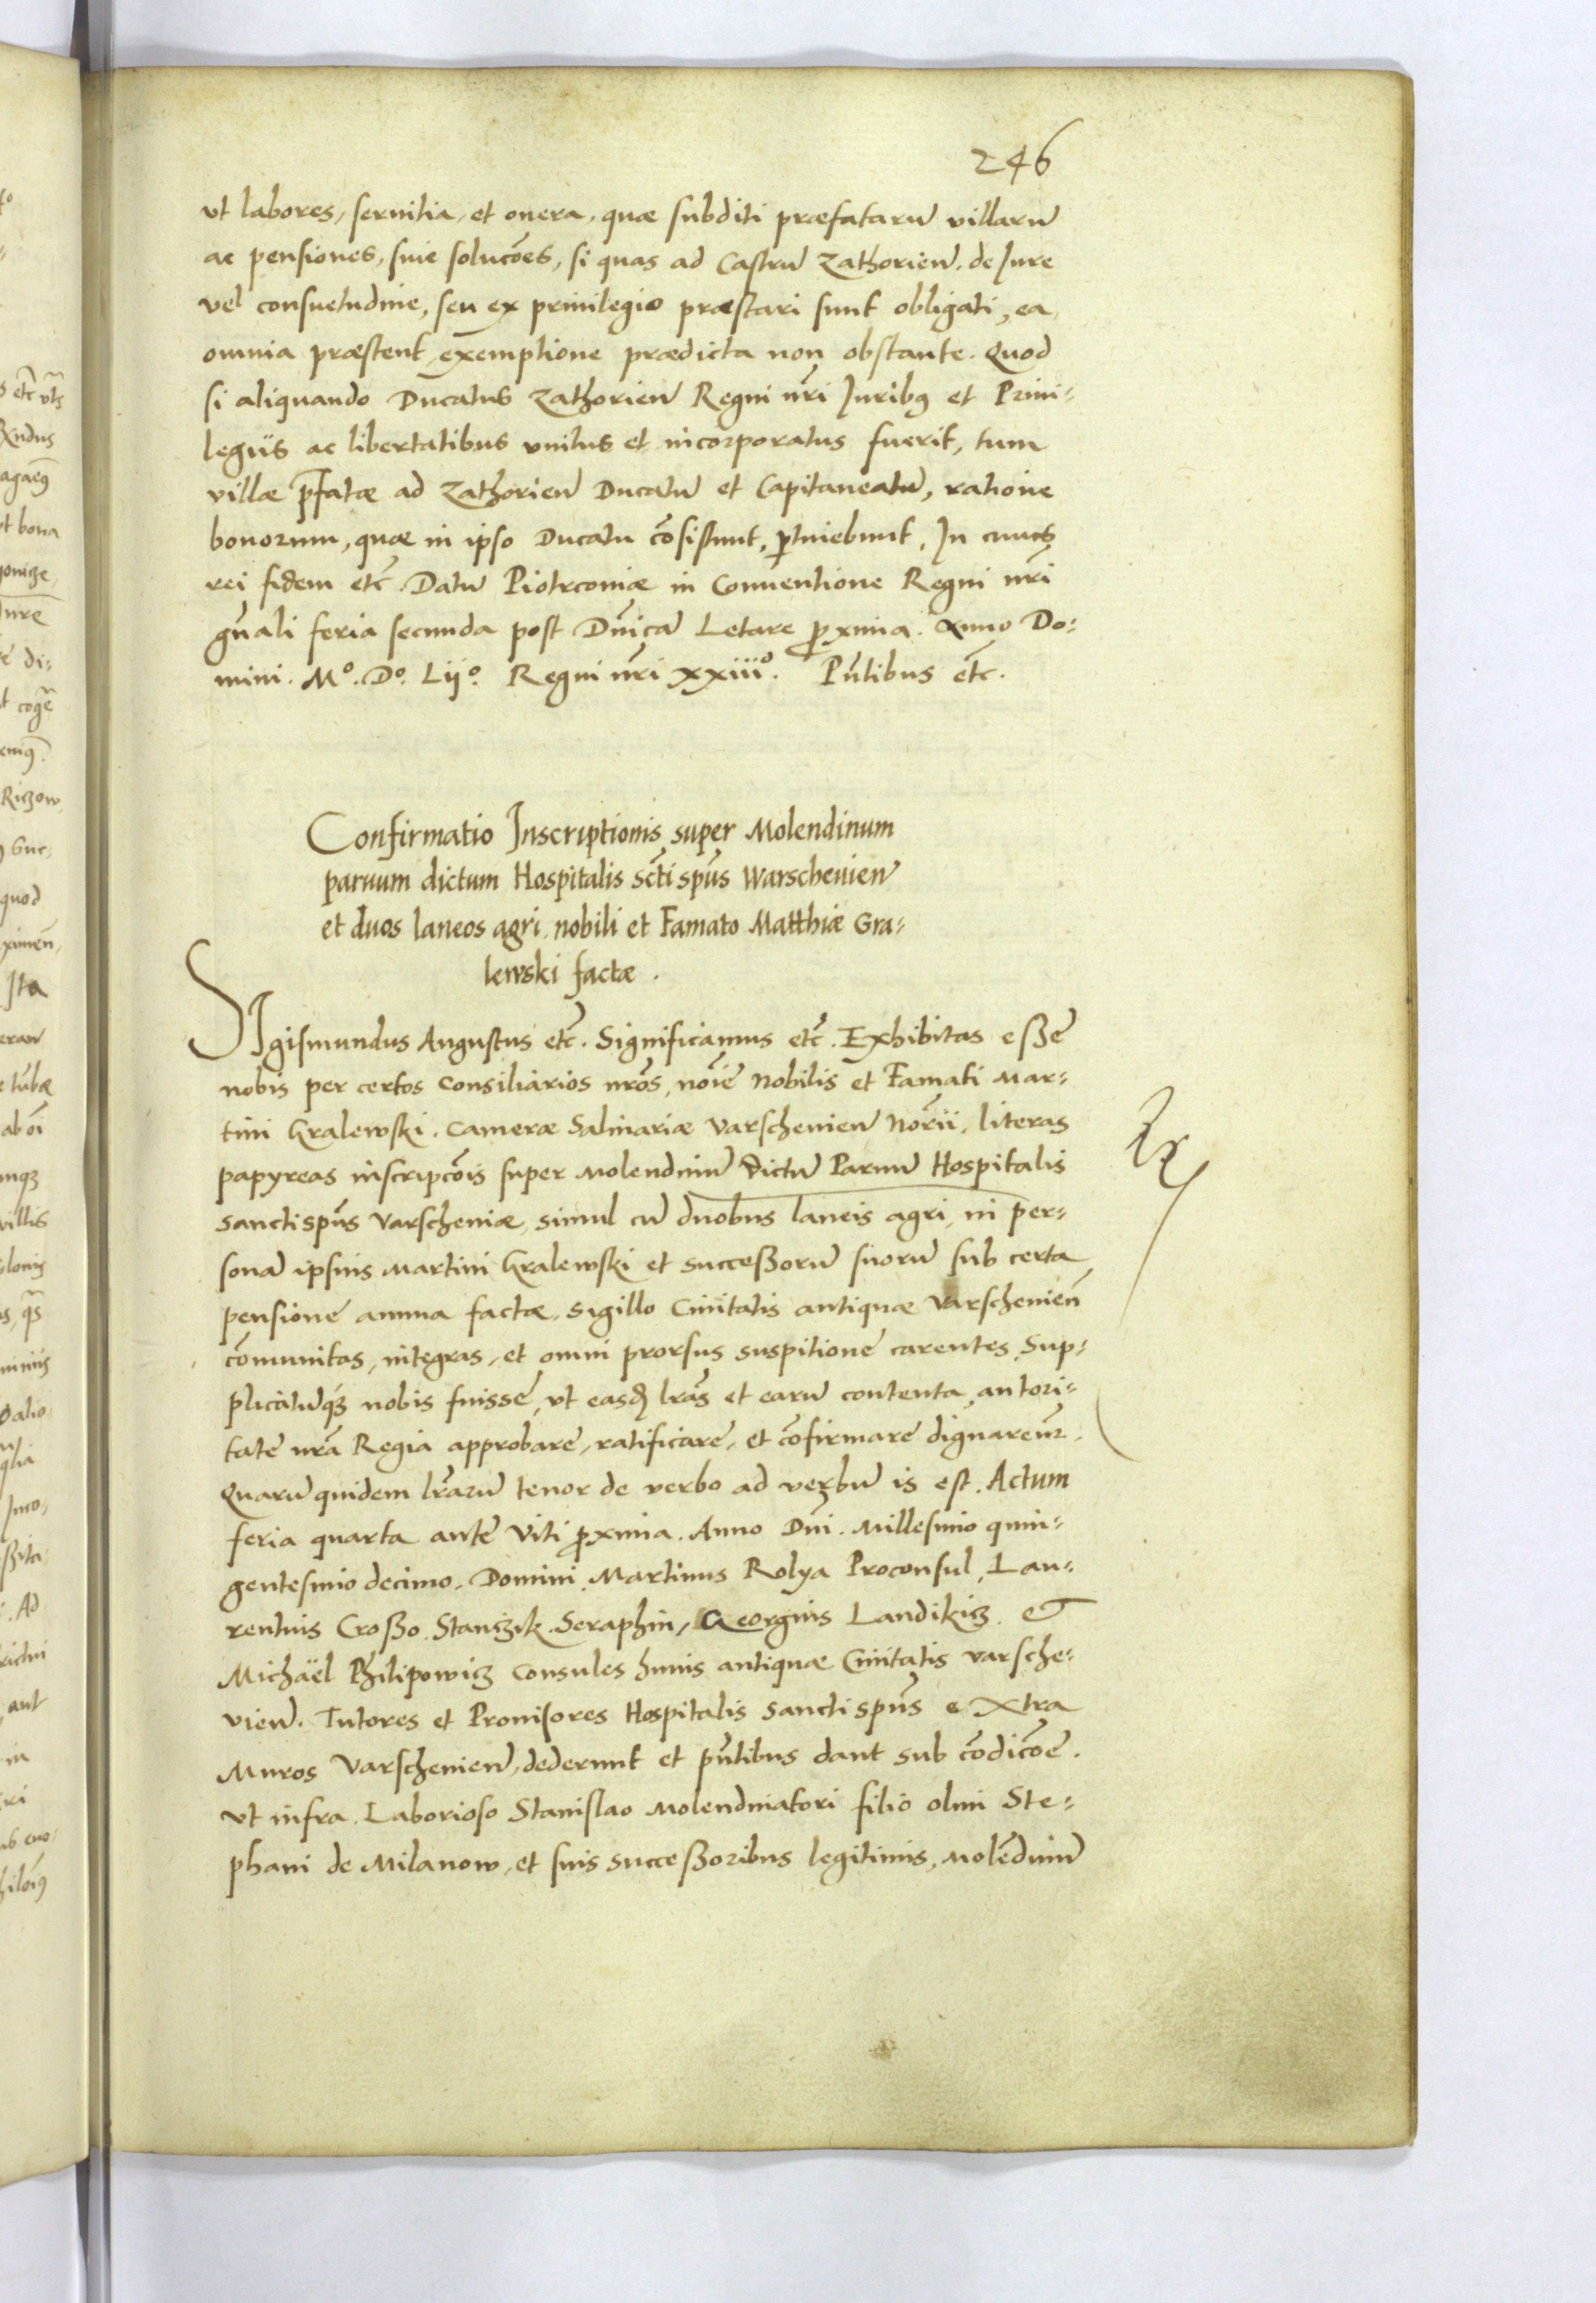 246
vt labores, seruitia, et onera, quæ subditi præfatarū villarū
ac pensiones, siue solucōes, si quas ad Castrū Zathorien̄. de Jure
vel consuetudine, seu ex priuilegio præstari sunt obligati, ea
omnia præstent, exemptione prædicta non obstante. Quod
si aliquando Ducatus Zathorien̄ Regni nr̄i Juribꝰ et Priui-
legiis ac libertatibus vnitus et incorporatus fuerit, tum
villæ p̄fatæ ad Zathorien̄ Ducatū et Capitaneatū, ratione
bonorum, quæ in ipso Ducatu cōsistunt, ꝑtinebunt. In cuius
rei fidem etc̄. Datū Piotrconiæ in Conuentione Regni nr̄i
gn̄ali feria secunda post Dn̄icā Letare ꝓxima. Anno Do-
mini. Mo. Do. Lijo. Regni nr̄i xxiiio. Pn̄tibus etc̄.
Confirmatio Inscriptionis super Molendinum
paruum dictum Hospitalis sctī spūs Warscheuien̄
et duos laneos agri, nobili et Famato Matthiæ Gra-
lewski factæ.
SIgismundus Augustus etc̄. Significamus etc̄. Exhibitas eße
nobis per certos Consiliarios nrōs, noīe Nobilis et Famati Mar-
tini Gralewski. Cameræ Salinariæ Varscheuien̄ Nōrii, literas
papyreas inscripcōis super Molendinū dictū Paruū Hospitalis
sancti spūs Varscheuiæ, simul cū duobus laneis agri, in per-
sonā ipsius Martini Gralewski et succeßorū suorū sub certa
pensione annua factæ, sigillo Ciuitatis antiquæ Varscheuien̄
cōmunitas, integras, et omni prorsus suspitione carentes, Sup-
plicatūqꝫ nobis fuisse, vt easdē lrās et earū contenta, autori-
tate nr̄a Regia approbare, ratificare, et cōfirmare dignaremꝰ.
Quarū quidem lr̄arū tenor de verbo ad verbū is est. Actum
feria quarta ante Viti ꝓxima. Anno Dn̄i. Millesimo quin-
gentesimo decimo. Domini Martinus Rolya Proconsul, Lau-
rentius Croßo. Stanczik. Seraphin, Georgius Landikicz. et
Michäel Philipowicz Consules huius antiquæ Ciuitatis Varsche-
uien̄. Tutores et Prouisores Hospitalis sancti spūs extra
Muros Varscheuien̄, dederunt et pn̄tibus dant sub cōdicōe.
vt infra. Laborioso Stanislao Molendinatori filio olim Ste-
phani de Milanow, et suis succeßoribus legitimis, Molendinū